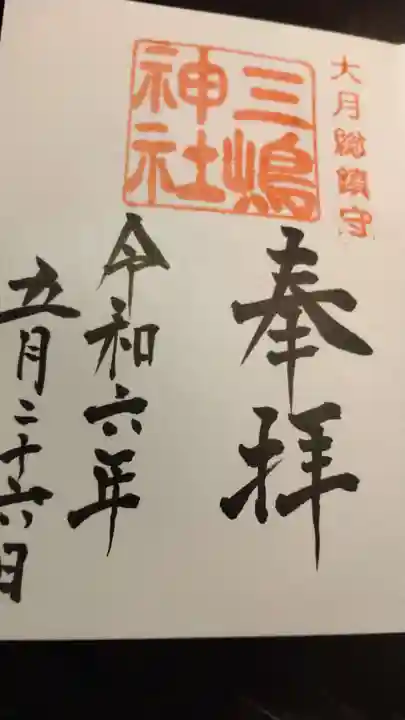 大月総鎮守
奉拝
三嶋
神社
令和六年
五月二十六日